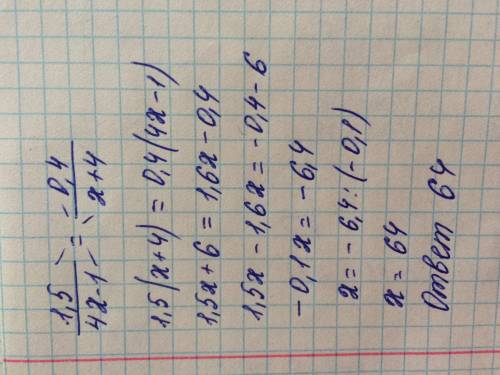 1,5/(4x-1) = 0,4/(x+4)
1,5(x+4) = 0,4(4x-1)
1,5x+6 = 1,6x-0,4
1,5x-1,6x = -0,4-6
-0,1x = -6,4
x = -6,4:(-0,1)
x = 64
Ответ 64